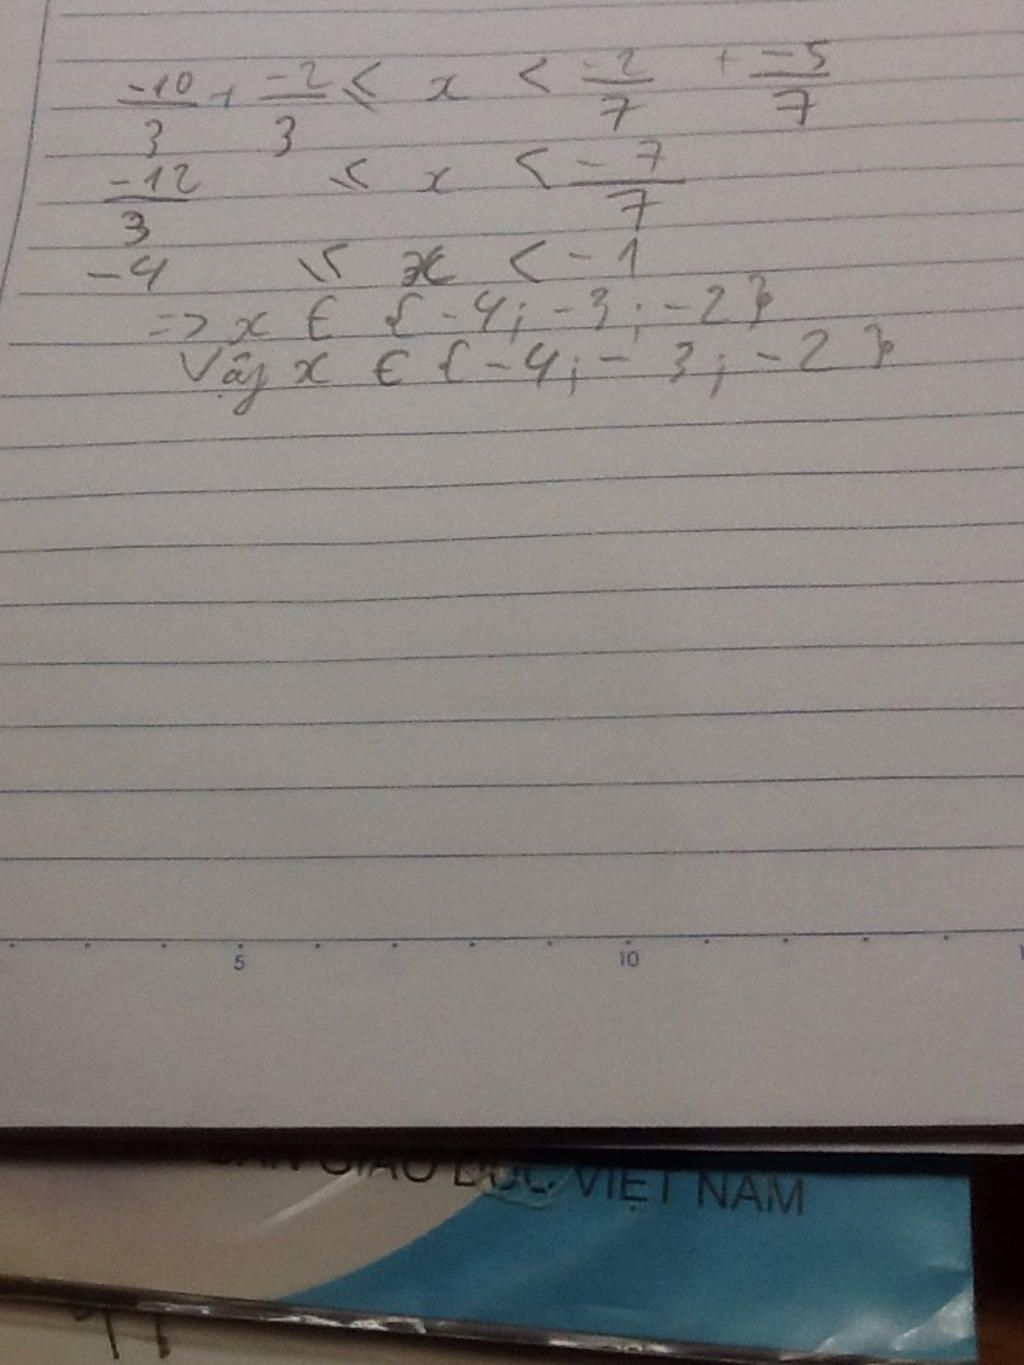 -10/3 + -2/3 ≤ x < -2/7 + -5/7
-12/3 ≤ x < -7/7
-4 ≤ x < -1
=> x ∈ {-4; -3; -2}
Vậy x ∈ {-4; -3; -2}
5 10
GIÁO DỤC VIỆT NAM